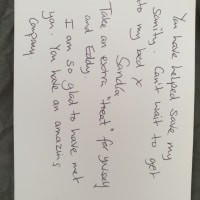 You have helped save my
sanity. Can't wait to get
into my bed x
Sandra
Take an extra "treat" for yourself
and Eddy.
I am so glad to have met
you. You have an amazing
company.